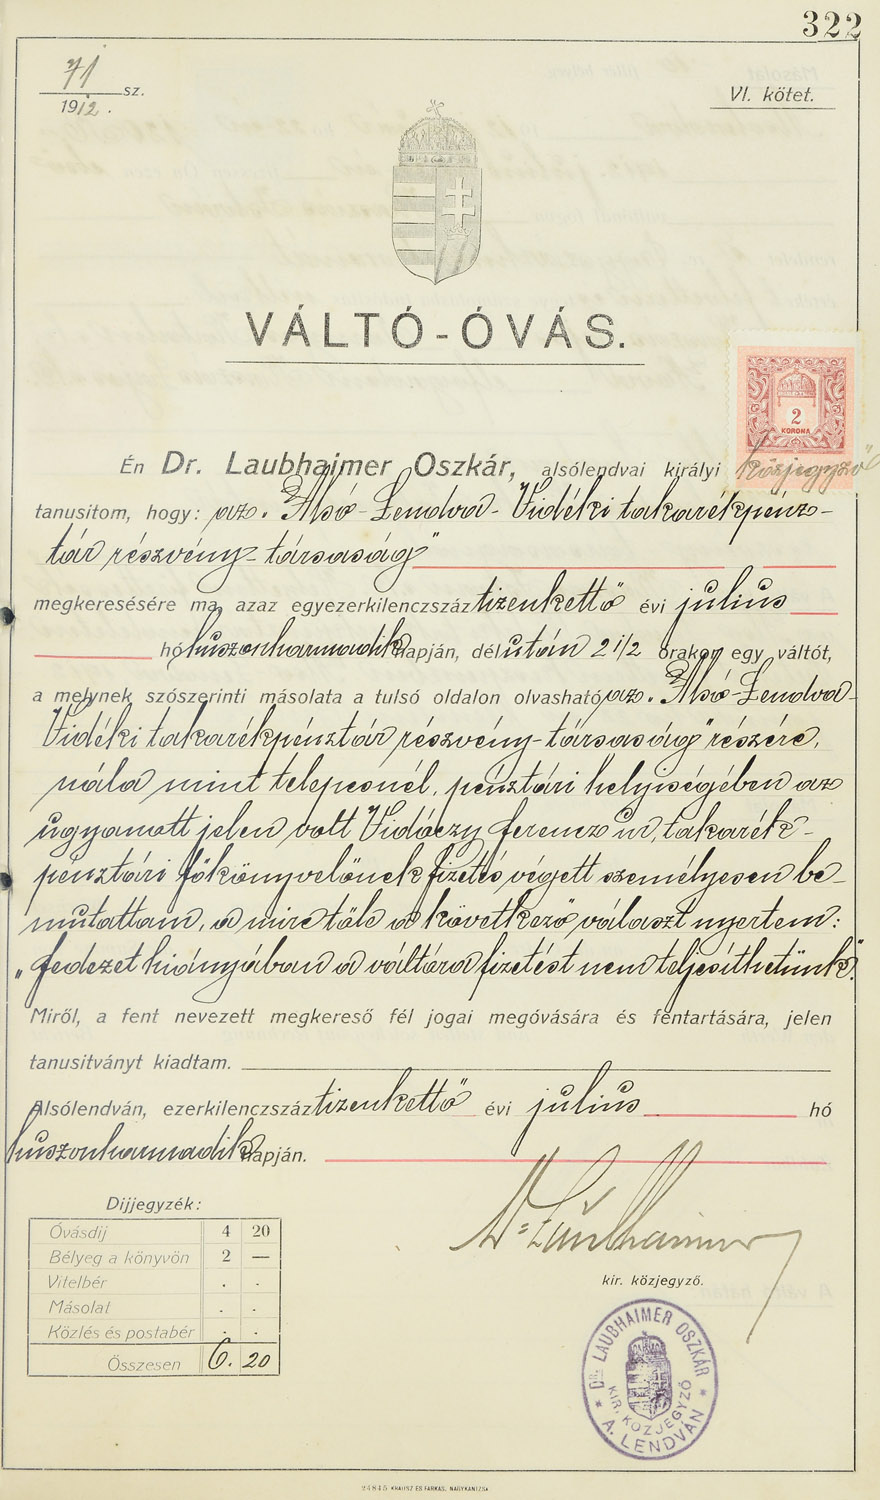 322
71 sz.
1912.
VI. kötet.
VÁLTÓ-ÓVÁS.
2
KORONA
Én Dr. Laubhaimer Oszkár, alsólendvai királyi közjegyző
tanusitom, hogy: az „Alsó-Lendva-Vidéki takarékpénz-
tár részvény-társaság"
megkeresésére ma, azaz egyezerkilenczszáz tizenkettő évi julius
hó huszonharmadik napján, délután 2 1/2 órakor egy váltót,
a melynek szószerinti másolata a tulsó oldalon olvasható, az „Alsó-Lendva-
Vidéki takarékpénztár részvény-társaság" részére,
nála mint telepesnél, pénztári helyiségében az
ugyanott jelen volt Vidóczy Ferencz úr, takarék-
pénztári főkönyvelőnek fizetés végett személyesen be-
mutattam, a mire tőle a következő választ nyertem:
„fedezet hiányában a váltóra fizetést nem teljesíthetünk".
Miről, a fent nevezett megkereső fél jogai megóvására és fentartására, jelen
tanusitványt kiadtam.
Alsólendván, ezerkilenczszáz tizenkettő évi julius hó
huszonharmadik napján.
Dr Laubhaimer
kir. közjegyző.
Dijjegyzék:
Óvásdij 4 20
Bélyeg a könyvön 2 —
Vitelbér . .
Másolat . .
Közlés és postabér . .
Összesen 6. 20
* DR. LAUBHAIMER OSZKÁR *
KIR. KÖZJEGYZŐ
A. LENDVÁN
24845 KRAUSZ ÉS FARKAS, NAGYKANIZSA